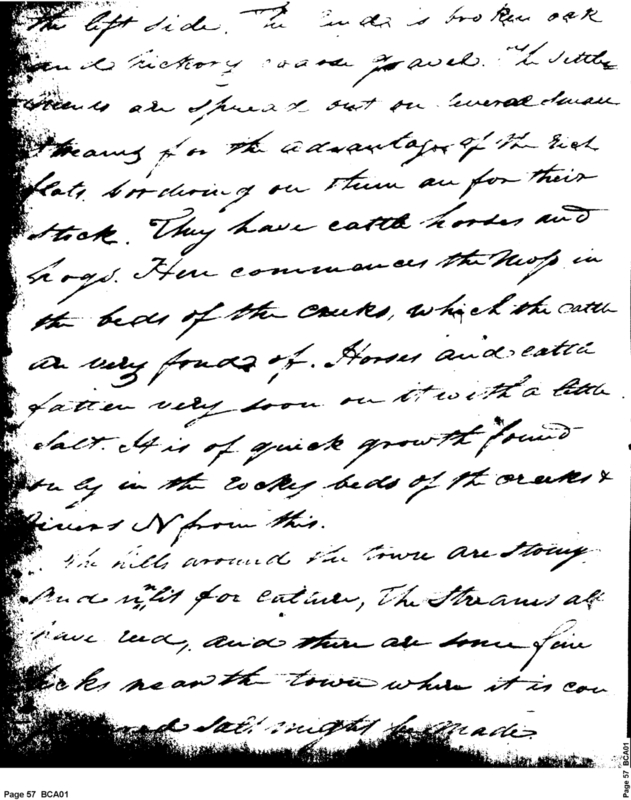 the left side. The lands is broken oak
and hickory coarse gravel. The settle
ments are spread out on several small
streams for the advantage of the rich
flats bordering on them an for their
stock. They have cattle horses and
hogs. Here commences the Moss in
the beds of the creeks, which the cattle
are very fond of. Horses and cattle
fatten very soon on it with a little
salt. It is of quick growth found
only in the rocky beds of the creeks &
rivers N from this.
The hills around the town are stony
and unfit for culture, The streams all
have reeds, and there are some fine
licks near the town where it is con
salt might be made
Page 57 BCA01
Page 57 BCA01